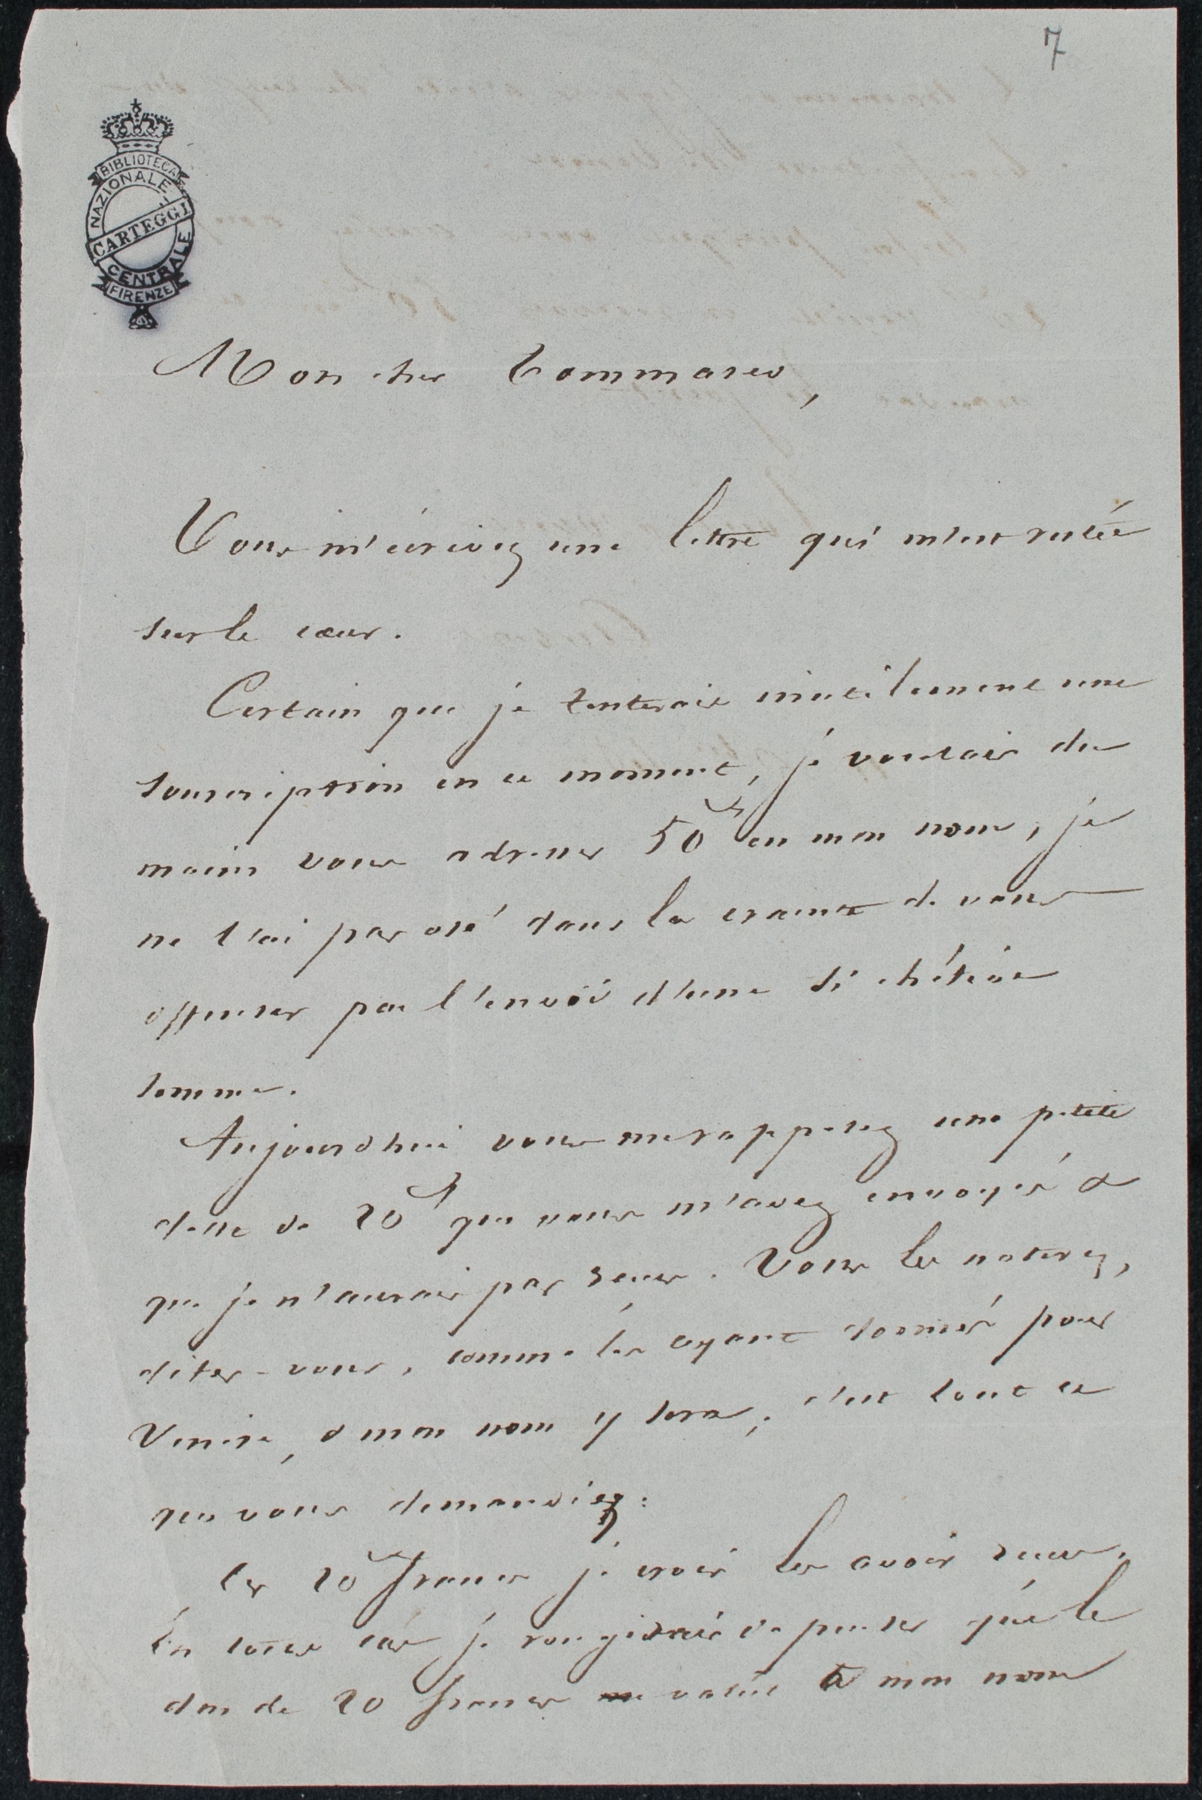 7
BIBLIOTECA
NAZIONALE
CARTEGGI
CENTRALE
FIRENZE
Mon cher Tommaseo,
Vous m'écrivez une lettre qui m'est restée
sur le cœur.
Certain que je tenterais inutilement une
souscription en ce moment, je voulais du
moins vous adresser 50 frs en mon nom, je
ne l'ai pas osé dans la crainte de vous
offenser par l'envoi d'une si chétive
somme.
Aujourdhui vous me rappelez une petite
dette de 20 f que vous m'avez envoyés &
que je n'aurais pas reçus. Vous les noterez,
dites-vous, comme les ayant donnés pour
Venise, & mon nom y sera; c'est tout ce
que vous demandiez.
Les 20 francs je crois les avoir reçus.
En tous cas je rougirais de penser que le
don de 20 francs valût à mon nom